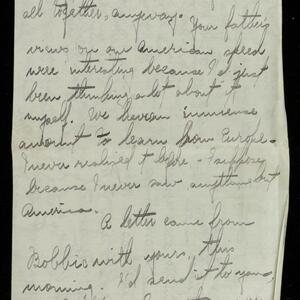 all together, anyway.
Your father's
views on our American speed
were interesting because I'd just
been thinking a lot about it
myself. We have an immense
amount to learn from Europe -
I never realized it before - I suppose
because I never saw anything but
America.
A letter came from
Bobbie with yours, this
morning. I'd send it to you,